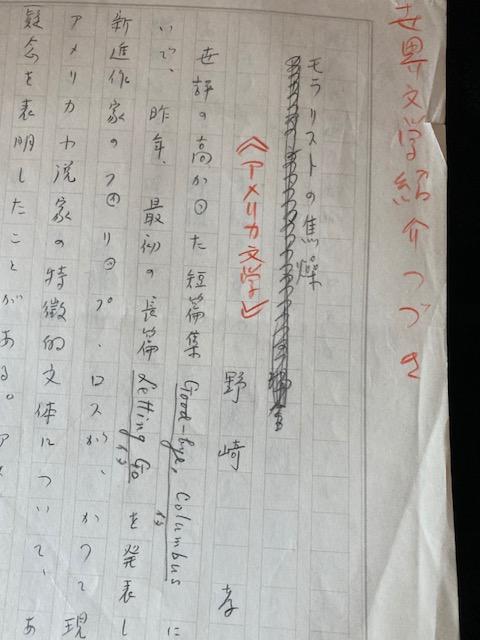 世界文学紹介つづき
モラリストの焦燥
《アメリカ文学》
野崎 孝
世評の高かった短篇集 Good-bye, Columbus に
イタ
いで、昨年、最初の長篇 Letting Go を発表し
イタ
新進作家のフィリップ・ロスが、かつて現
アメリカ小説家の特徴的文体について、あ
疑念を表明したことがある。ア